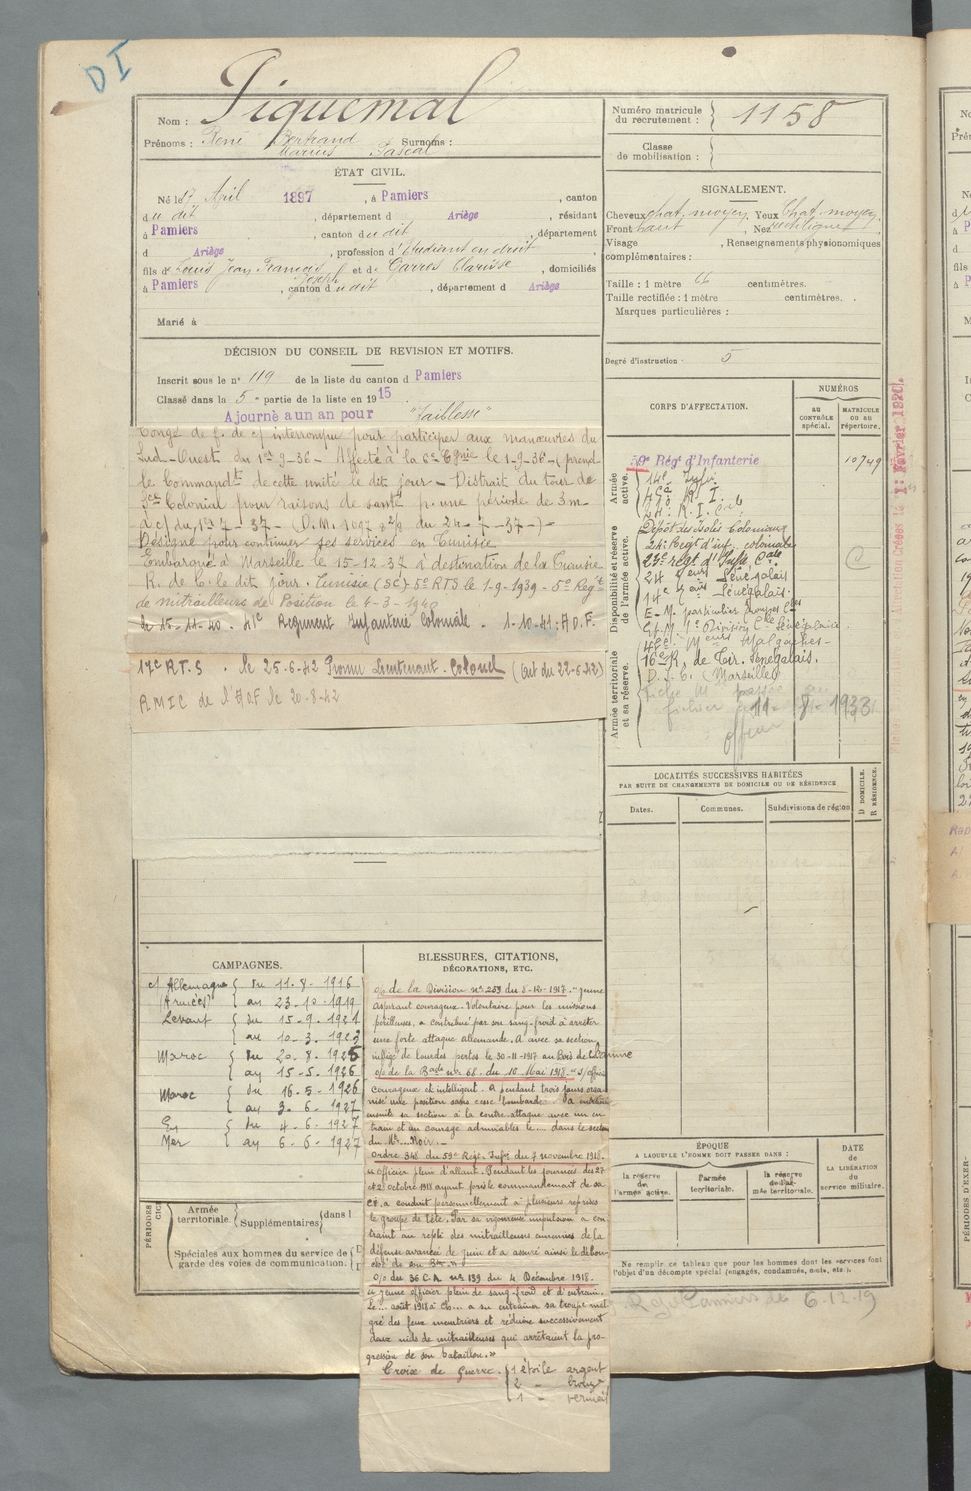 DI
Nom : Piquemal
Prénoms : René Bertrand Surnoms :
Marius Pascal
Numéro matricule
du recrutement : 1158
Classe
de mobilisation :
ÉTAT CIVIL.
Né le 17 Avril 1897, à Pamiers, canton
du dit, département d Ariège, résidant
à Pamiers, canton du dit, département
d Ariège, profession d'Etudiant en droit,
fils de Louis Jean François Joseph et de Garros Clarisse, domiciliés
à Pamiers, canton du dit, département d Ariège
Marié à
SIGNALEMENT.
Cheveux chat. moyen, Yeux Chat. moyen,
Front haut, Nez rectiligne,
Visage , Renseignements physionomiques
complémentaires :
Taille : 1 mètre 66 centimètres.
Taille rectifiée : 1 mètre centimètres.
Marques particulières :
Degré d'instruction : 5
DÉCISION DU CONSEIL DE REVISION ET MOTIFS.
Inscrit sous le n° 119 de la liste du canton d Pamiers
Classé dans la 5e partie de la liste en 1915.
Ajourné a un an pour "faiblesse"
Congé de f. de c/ interrompu pour participer aux manœuvres du
Sud-Ouest du 1er-9-36 - Affecté à la 6e Cgnie le 1-9-36 - (prend
le Commandt de cette unité le dit jour - Distrait du tour de
Sce Colonial pour raisons de santé p. une période de 3m
à c/ du 1er 7 - 37 - (D.M. 1097 2/8 du 24 - 7 - 37 -) -
Désigné pour continuer ses services en Tunisie
Embarqué à Marseille le 15-12-37 à destination de la Tunisie
R. de C. le dit jour. Tunisie (SC) 5e RTS le 1-9-1939 - 5e Regt
de mitrailleurs de Position le 4-3-1940
le 15-11-40. 41e Régiment Infanterie Coloniale. 1-10-41 : A.O.F.
17e R.T.S. le 25-6-42 Promu Lieutenant-Colonel (Ort du 22-6-42)
RMIC de l'AOF le 20-8-42
CORPS D'AFFECTATION.
NUMÉROS
AU
CONTRÔLE
spécial.
MATRICULE
OU AU
répertoire.
Armée
active.
59e Régt d'Infanterie 10749
14e Infie
R. I.
24e R. I. Cle
Disponibilité et réserve
de l'armée active.
Dépôt des Isolés Coloniaux
24e Regt d'inf. coloniale
23e régt d'Infie Cale
24 Teurs Sénégalais
14e Teurs Sénégalais
E-M- particulier Troupes Cles
Malgaches-
16e R. de Tir. Sénégalais.
D.I.C. (Marseille)
Armée territoriale
et sa réserve.
fiche M passée au
fichier 11- 8- 1933
officier
LOCALITÉS SUCCESSIVES HABITÉES
PAR SUITE DE CHANGEMENTS DE DOMICILE OU DE RÉSIDENCE
Dates.
Communes.
Subdivisions de région
D DOMICILE.
R RÉSIDENCE.
CAMPAGNES.
c/ Allemagne du 11-8-1916
(Armées) au 23-10-1919
Levant du 15-9-1921
au 10-3-1923
Maroc du 20-8-1925
au 15-5-1926
Maroc du 16-5-1926
au 3-6-1927
En du 4-6-1927
Mer au 6-6-1927
BLESSURES, CITATIONS,
DÉCORATIONS, ETC.
o/ de la Division n° 259 du 8-12-1917. "jeune
aspirant courageux. Volontaire pour les missions
périlleuses, a contribué par son sang-froid à arrêter
une forte attaque allemande. A avec sa section
infligé de lourdes pertes le 30-11-1917 au Bois de Chaume
o/ de la Bade n° 66 du 10 Mai 1918. "s/officier
courageux et intelligent. A pendant trois jours orga-
nisé une position sans cesse bombardée. A entraîné
ensuite sa section à la contre-attaque avec un en-
train et un courage admirables le .... dans le secteur
du Mt.... Noir. -
Ordre 348 du 59e Regt. Infie du 7 novembre 1918.
"officier plein d'allant. Pendant les journées des 27
et 2 octobre 1918 ayant pris le commandement de sa
Cie, a conduit personnellement à plusieurs reprises
le groupe de tête. Par sa vigoureuse impulsion a con-
traint au repli des mitrailleuses ennemies de la
défense avancée de Juin et a assuré ainsi le débou-
ché de son Bon. »
o/ du 36 C.A. n° 139 du 4 Décembre 1918.
"jeune officier plein de sang-froid et d'entrain.
Le ... août 1918 à Ch... a su entraîner sa troupe mal-
gré des feux meurtriers et réduire successivement
deux nids de mitrailleuses qui arrêtaient la pro-
gression de son bataillon.»
Croix de Guerre. 1 étoile argent
2 - bronze
1 - vermeil
PÉRIODES
Armée
territoriale.
Supplémentaires
dans l
Spéciales aux hommes du service de
garde des voies de communication.
ÉPOQUE
A LAQUELLE L'HOMME DOIT PASSER DANS :
la réserve
de
l'armée active.
l'armée
territoriale.
la réserve
de l'ar-
mée territoriale.
DATE
de
LA LIBÉRATION
du
service militaire.
Ne remplir ce tableau que pour les hommes dont les services font
l'objet d'un décompte spécial (engagés, condamnés, omis, etc.).
Pamiers le 6.12.19